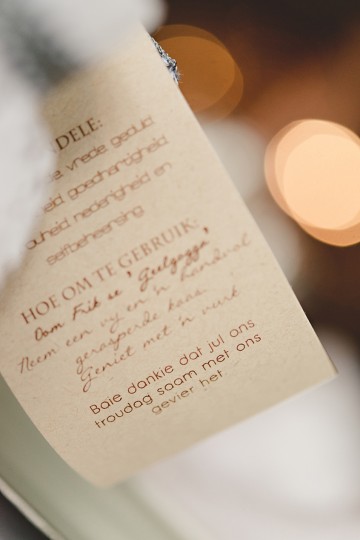 DELE:
vrede geduld
goedhartigheid
nederigheid en
selfbeheersing
HOE OM TE GEBRUIK:
Oom Frik se 'Geelgogga',
Neem een vy en 'n handvol
gerasperde kaas.
Geniet met 'n vurk
Baie dankie dat jul ons
troudag saam met ons
gevier het.